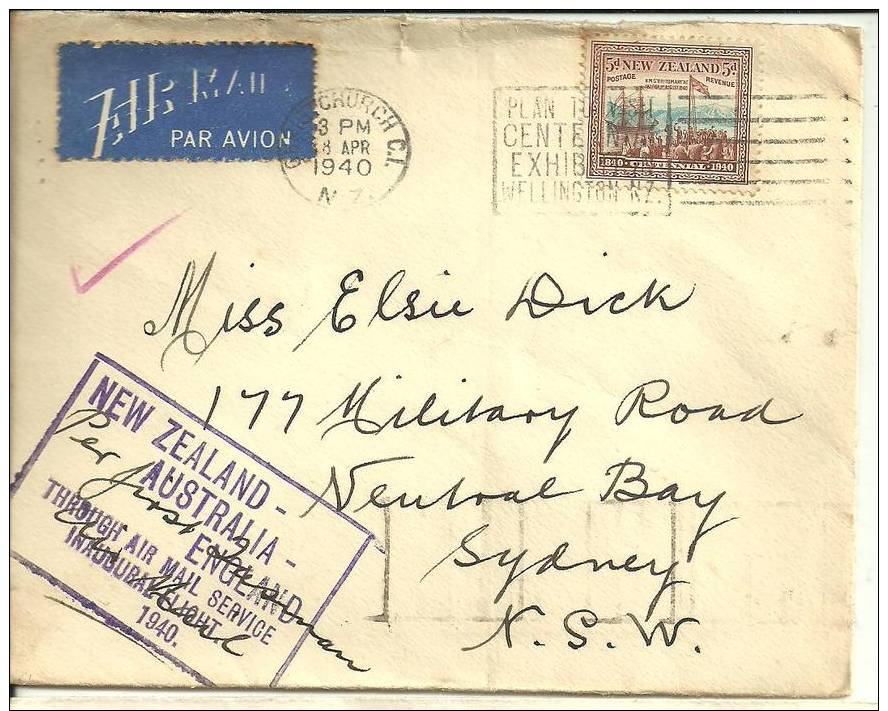 AIR MAIL
PAR AVION
CHRISTCHURCH C.1.
3 PM
8 APR
1940
N.Z.
PLAN
CENTEN
EXHIB
WELLINGTON NZ.
5d NEW ZEALAND 5d
POSTAGE REVENUE
1840 · CENTENNIAL · 1940
Miss Elsie Dick
177 Military Road
Neutral Bay
Sydney
N. S. W.
NEW ZEALAND -
AUSTRALIA -
ENGLAND
THROUGH AIR MAIL SERVICE
INAUGURAL FLIGHT.
1940.
Per first Tasman
Air Mail